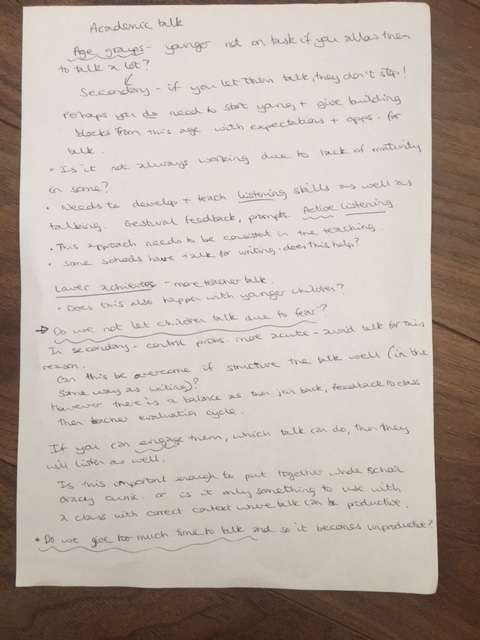 Academic talk
Age groups - younger not on task if you allow them
to talk a lot?
Secondary - if you let them talk, they don't stop!
Perhaps you do need to start young + give building
blocks from this age with expectations + opps. for
talk.
• Is it not always working due to lack of maturity
in some?
• Needs to develop + teach listening skills as well as
talking. Gestural feedback, prompts. Active listening.
• This approach needs to be consistent in the teaching.
• Some schools have talk for writing - does this help?
Lower achievers - more teacher talk.
• Does this also happen with younger children?
→ Do we not let children talk due to fear?
In secondary - control probs. more acute - avoid talk for this
reason.
Can this be overcome if structure the talk well (in the
same way as writing)?
However there is a balance as then join back, feedback to class
then teacher evaluation cycle.
If you can engage them, which talk can do, then they
will listen as well.
Is this important enough to put together whole school
oracy curric. or is it only something to use with
a class with correct context where talk can be productive.
• Do we give too much time to talk and so it becomes unproductive?